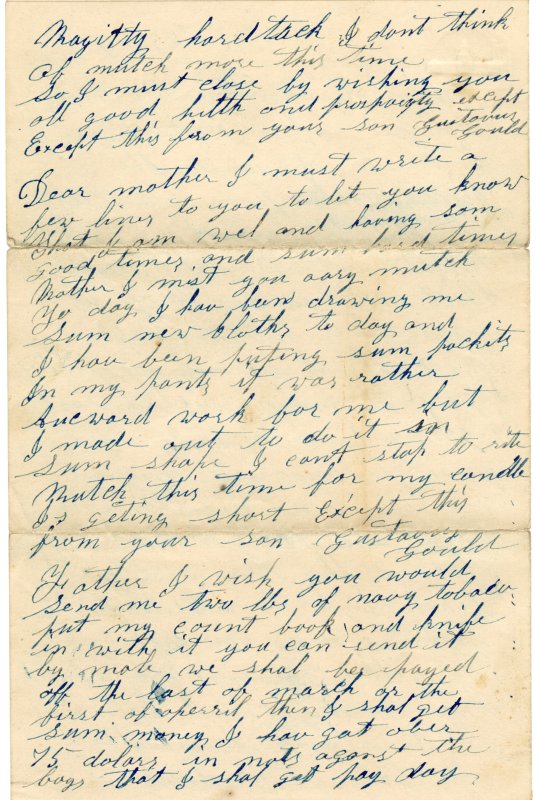 Magitty hardtack I dont think
Of mutch more this time
So I must close by wishing you
all good hilth and prospaigty except
Except this from your son Gustavus
Gould
Dear mother I must write a
few lines to you to let you know
That I am wel and having som
good times and sum hard times
Mother I mist you vary mutch
To day I hav been drawing me
Sum new Cloths to day and
I hav been puting sum pockits
In my pants it was rather
Aucward work for me but
I made out to do it in
Sum shape I cant stop to rite
Mutch this time for my candle
Is geting short Except this
from your son Gustavus
Gould
Father I wish you would
Send me two lbs of navy tobaco
put my count book and knife
in with it you can send it
by male we shal be payed
off the last of march or the
first of aperril then I shal get
Sum money I hav got over
75 dolars in nots aganst the
boys that I shal get pay day